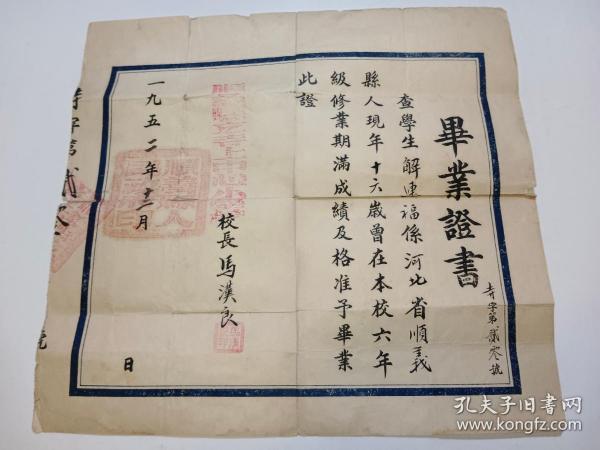 畢業證書
字第貳零號
查學生解連福係河北省順義
縣人現年十六歲曾在本校六年
級修業期滿成績及格准予畢業
此證
校長馬漢良
一九五二年十二月
日
孔夫子旧书网
www.kongfz.com